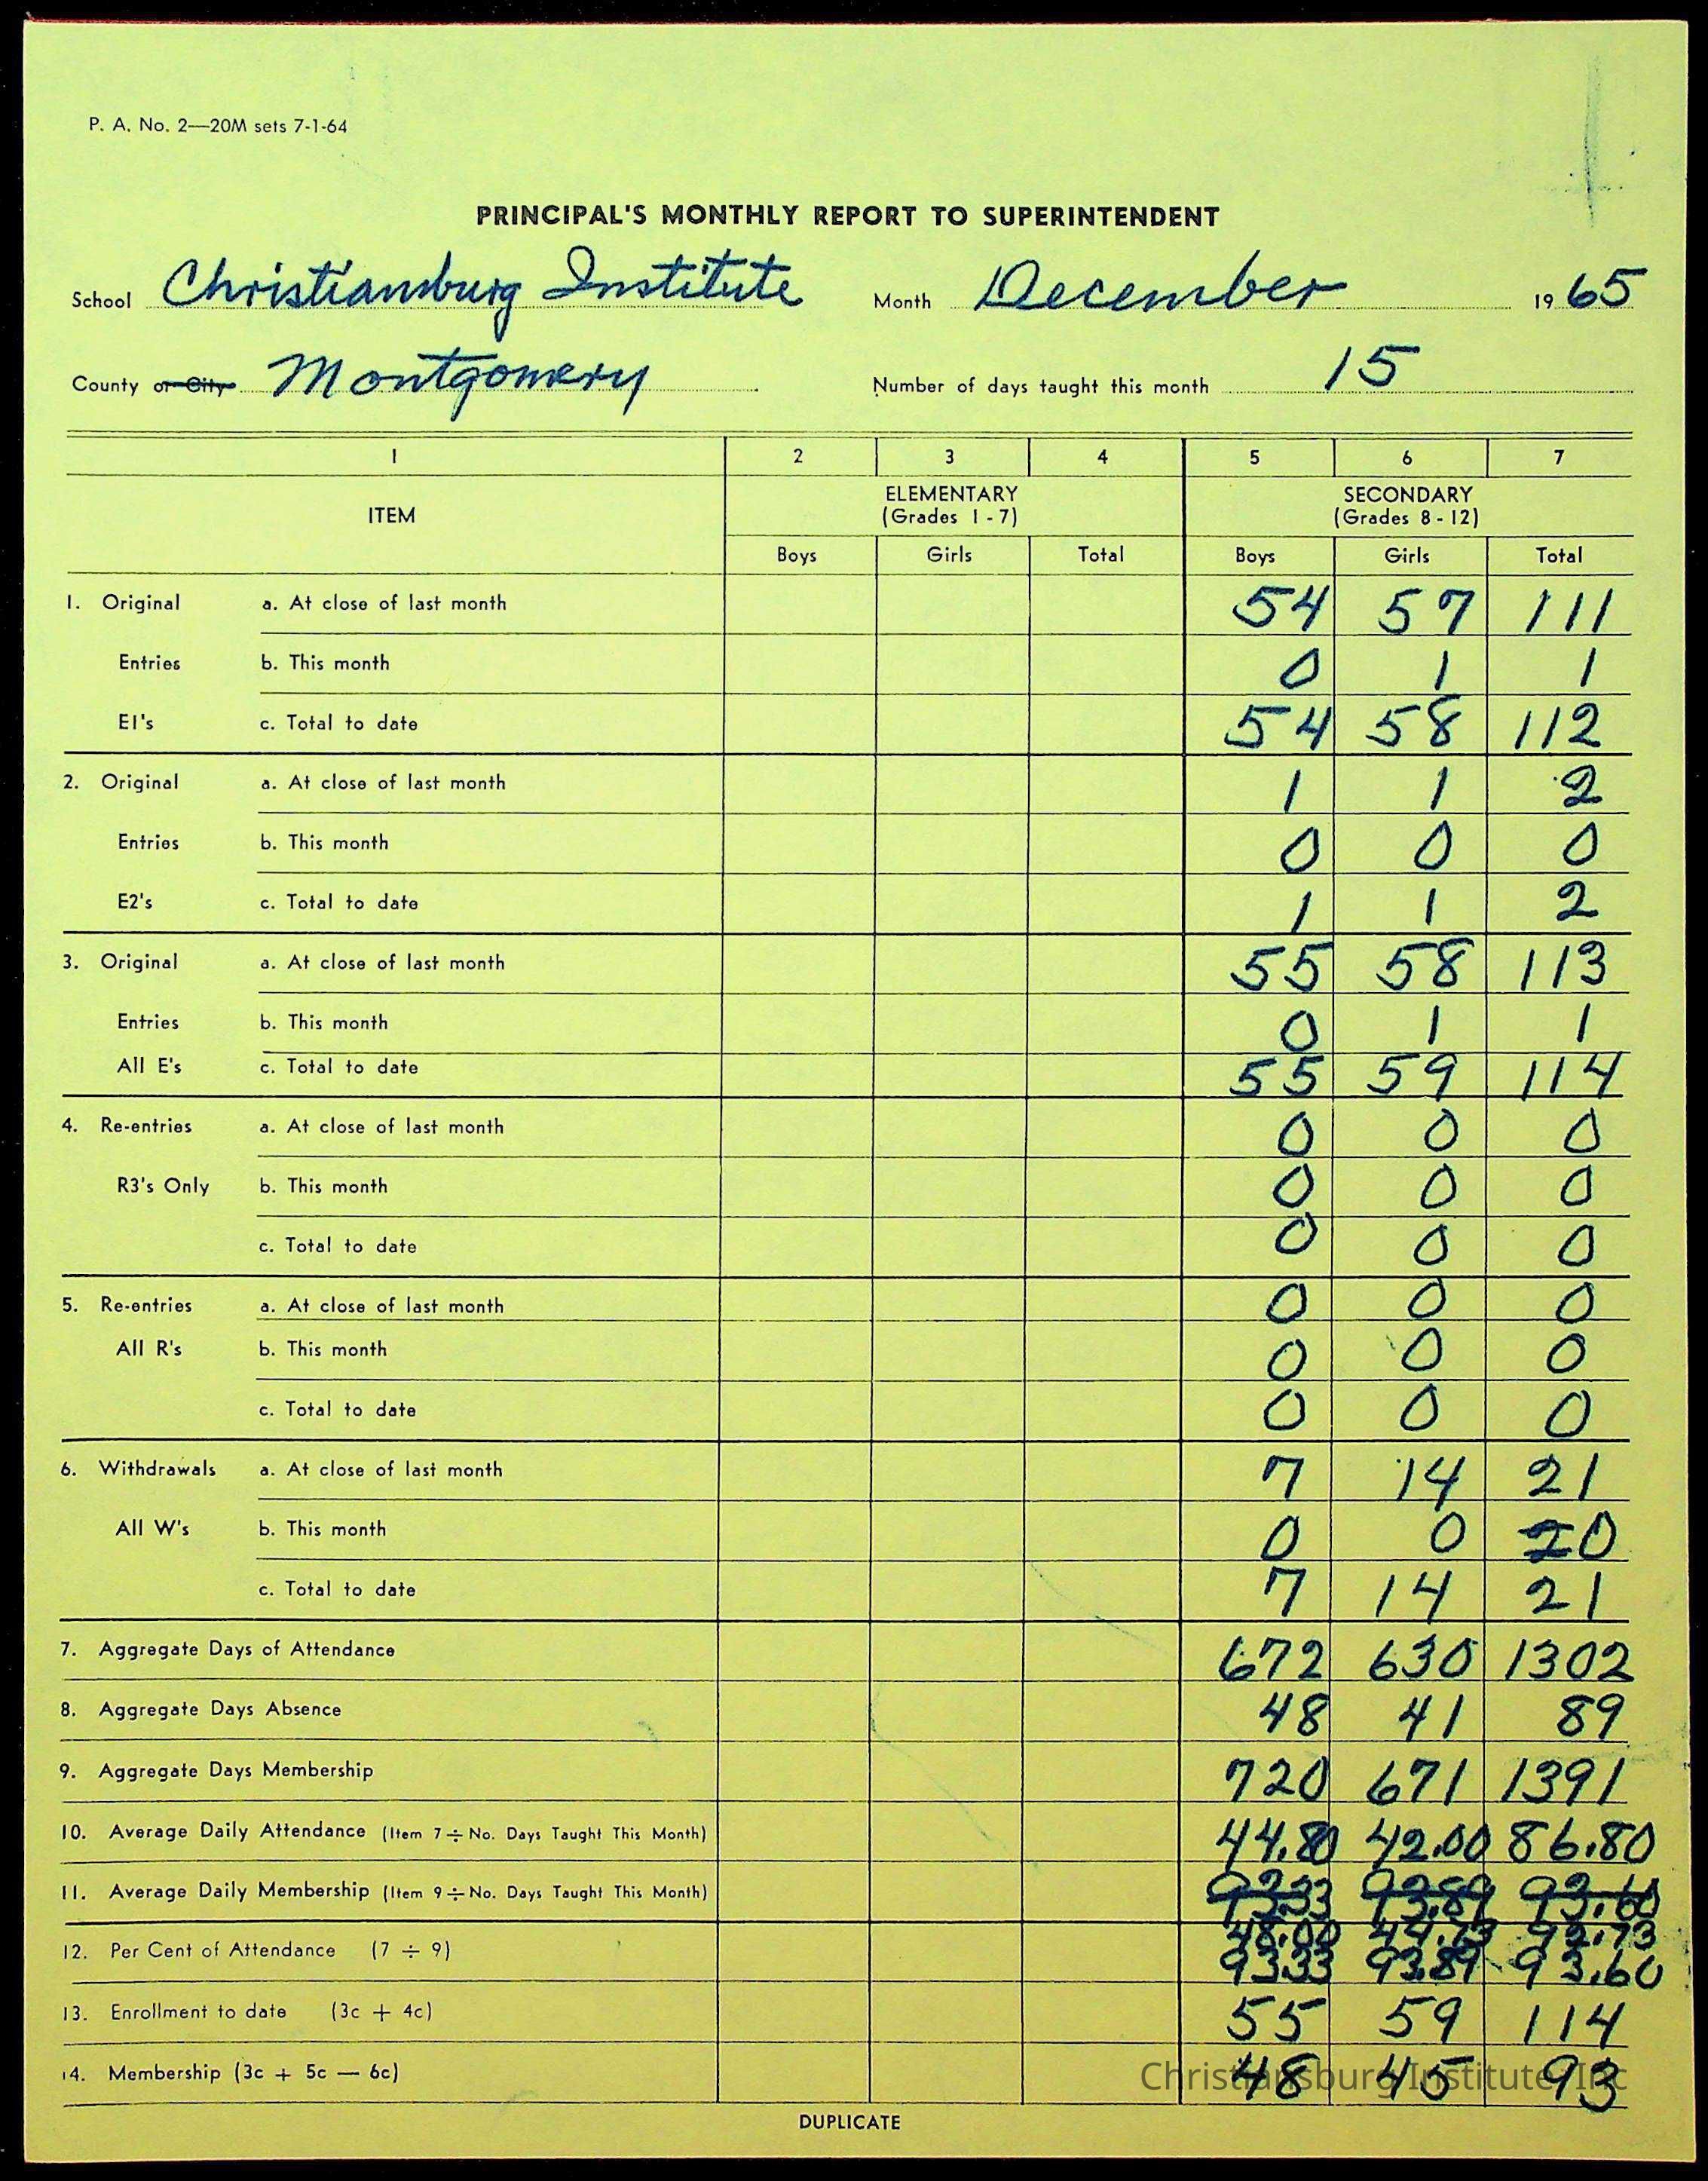 P. A. No. 2—20M sets 7-1-64
PRINCIPAL'S MONTHLY REPORT TO SUPERINTENDENT
School Christiansburg Institute Month December 19 65
County or City Montgomery Number of days taught this month 15
1 2 3 4 5 6 7
ITEM ELEMENTARY (Grades 1 - 7) SECONDARY (Grades 8 - 12)
Boys Girls Total Boys Girls Total
1. Original a. At close of last month 54 57 111
Entries b. This month 0 1 1
E1's c. Total to date 54 58 112
2. Original a. At close of last month 1 1 2
Entries b. This month 0 0 0
E2's c. Total to date 1 1 2
3. Original a. At close of last month 55 58 113
Entries b. This month 0 1 1
All E's c. Total to date 55 59 114
4. Re-entries a. At close of last month 0 0 0
R3's Only b. This month 0 0 0
c. Total to date 0 0 0
5. Re-entries a. At close of last month 0 0 0
All R's b. This month 0 0 0
c. Total to date 0 0 0
6. Withdrawals a. At close of last month 7 14 21
All W's b. This month 0 0 20
c. Total to date 7 14 21
7. Aggregate Days of Attendance 672 630 1302
8. Aggregate Days Absence 48 41 89
9. Aggregate Days Membership 720 671 1391
10. Average Daily Attendance (Item 7 ÷ No. Days Taught This Month) 44.80 42.00 86.80
11. Average Daily Membership (Item 9 ÷ No. Days Taught This Month) 93.33 93.89 93.60
48.00 44.73 92.73
12. Per Cent of Attendance (7 ÷ 9) 93.33 93.89 93.60
13. Enrollment to date (3c + 4c) 55 59 114
14. Membership (3c + 5c — 6c) 48 45 93
Christiansburg Institute, Inc
DUPLICATE